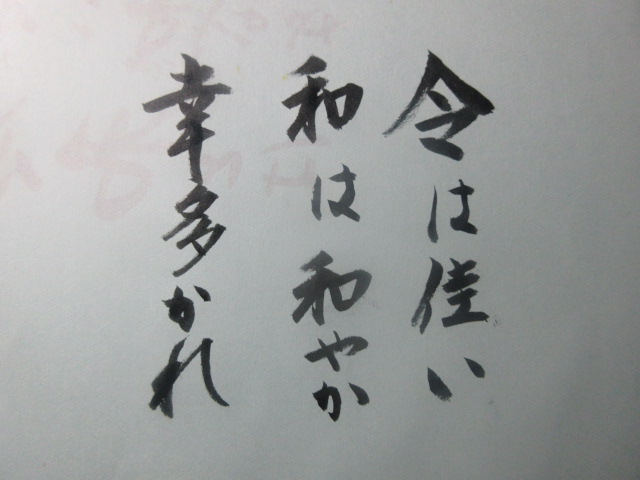 令は佳い
和は和やか
幸多かれ